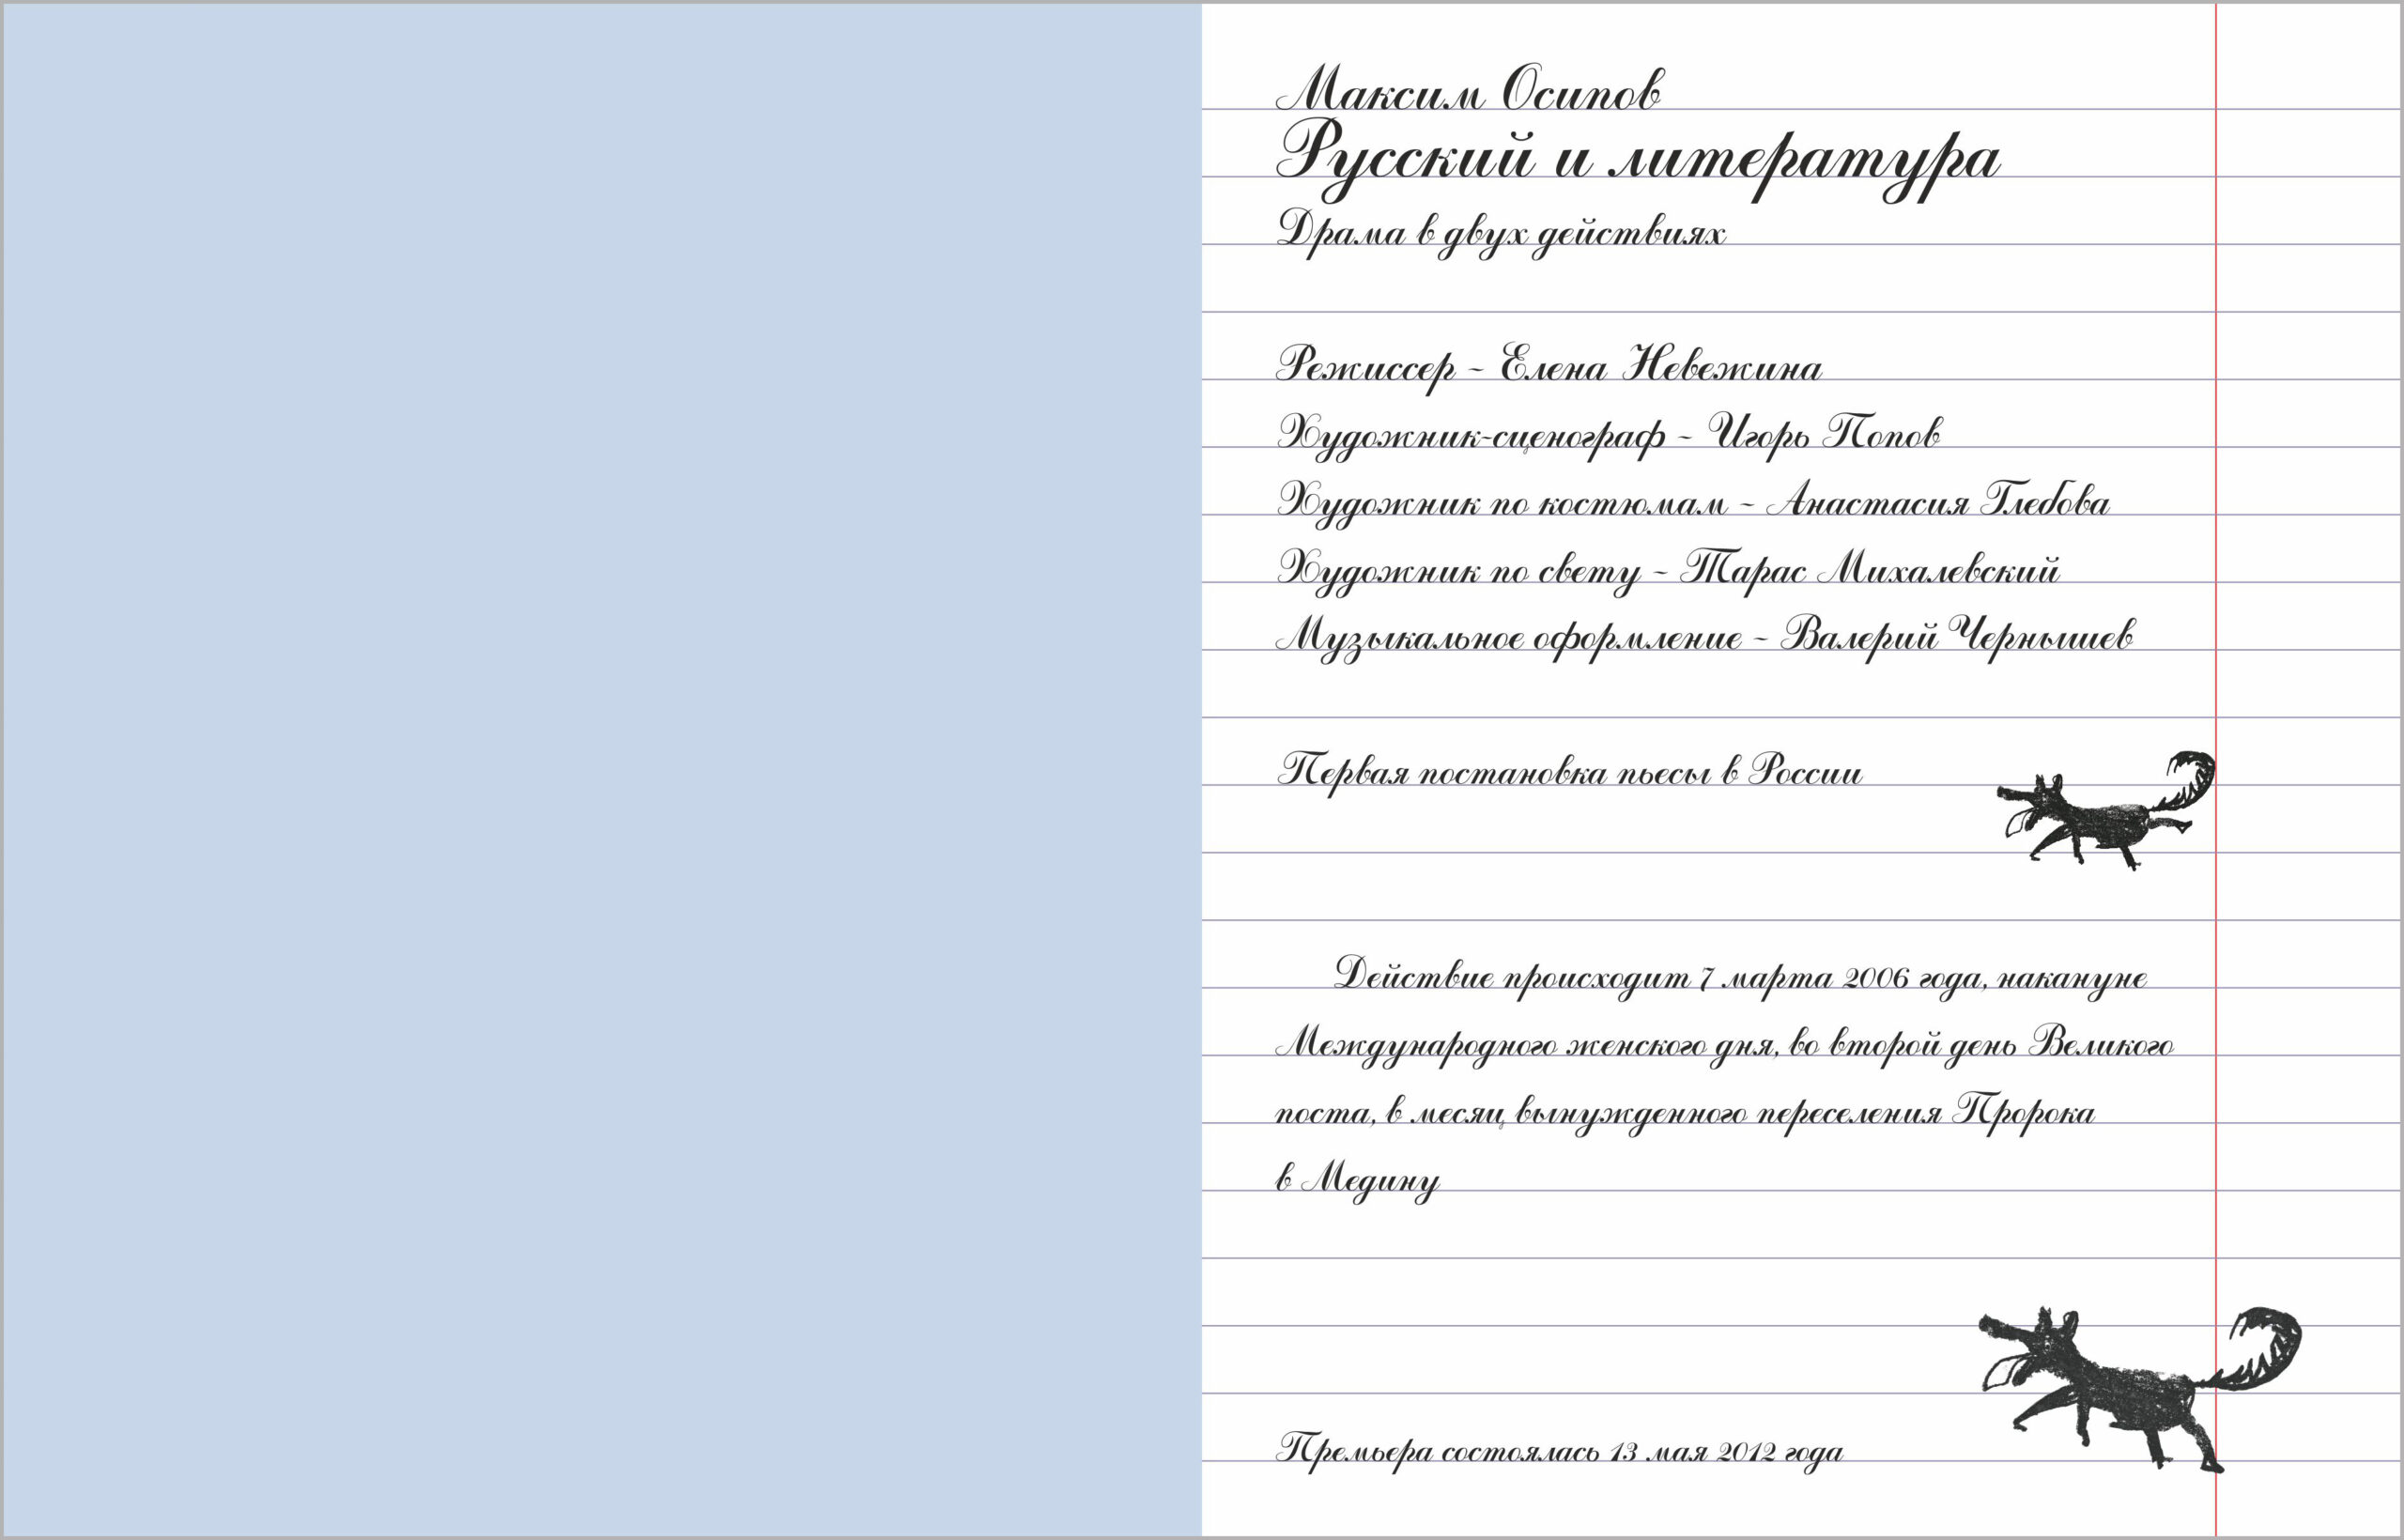 Максим Осипов
Русский и литература
Драма в двух действиях
Режиссер - Елена Невежина
Художник-сценограф - Игорь Попов
Художник по костюмам - Анастасия Глебова
Художник по свету - Тарас Михалевский
Музыкальное оформление - Валерий Чернышев
Первая постановка пьесы в России
Действие происходит 7 марта 2006 года, накануне
Международного женского дня, во второй день Великого
поста, в месяц вынужденного переселения Пророка
в Медину
Премьера состоялась 13 мая 2012 года